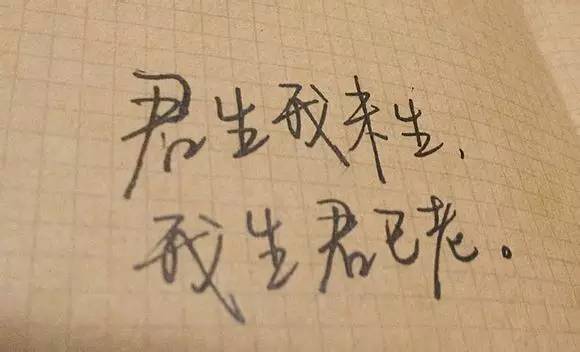 君生我未生，
我生君已老。